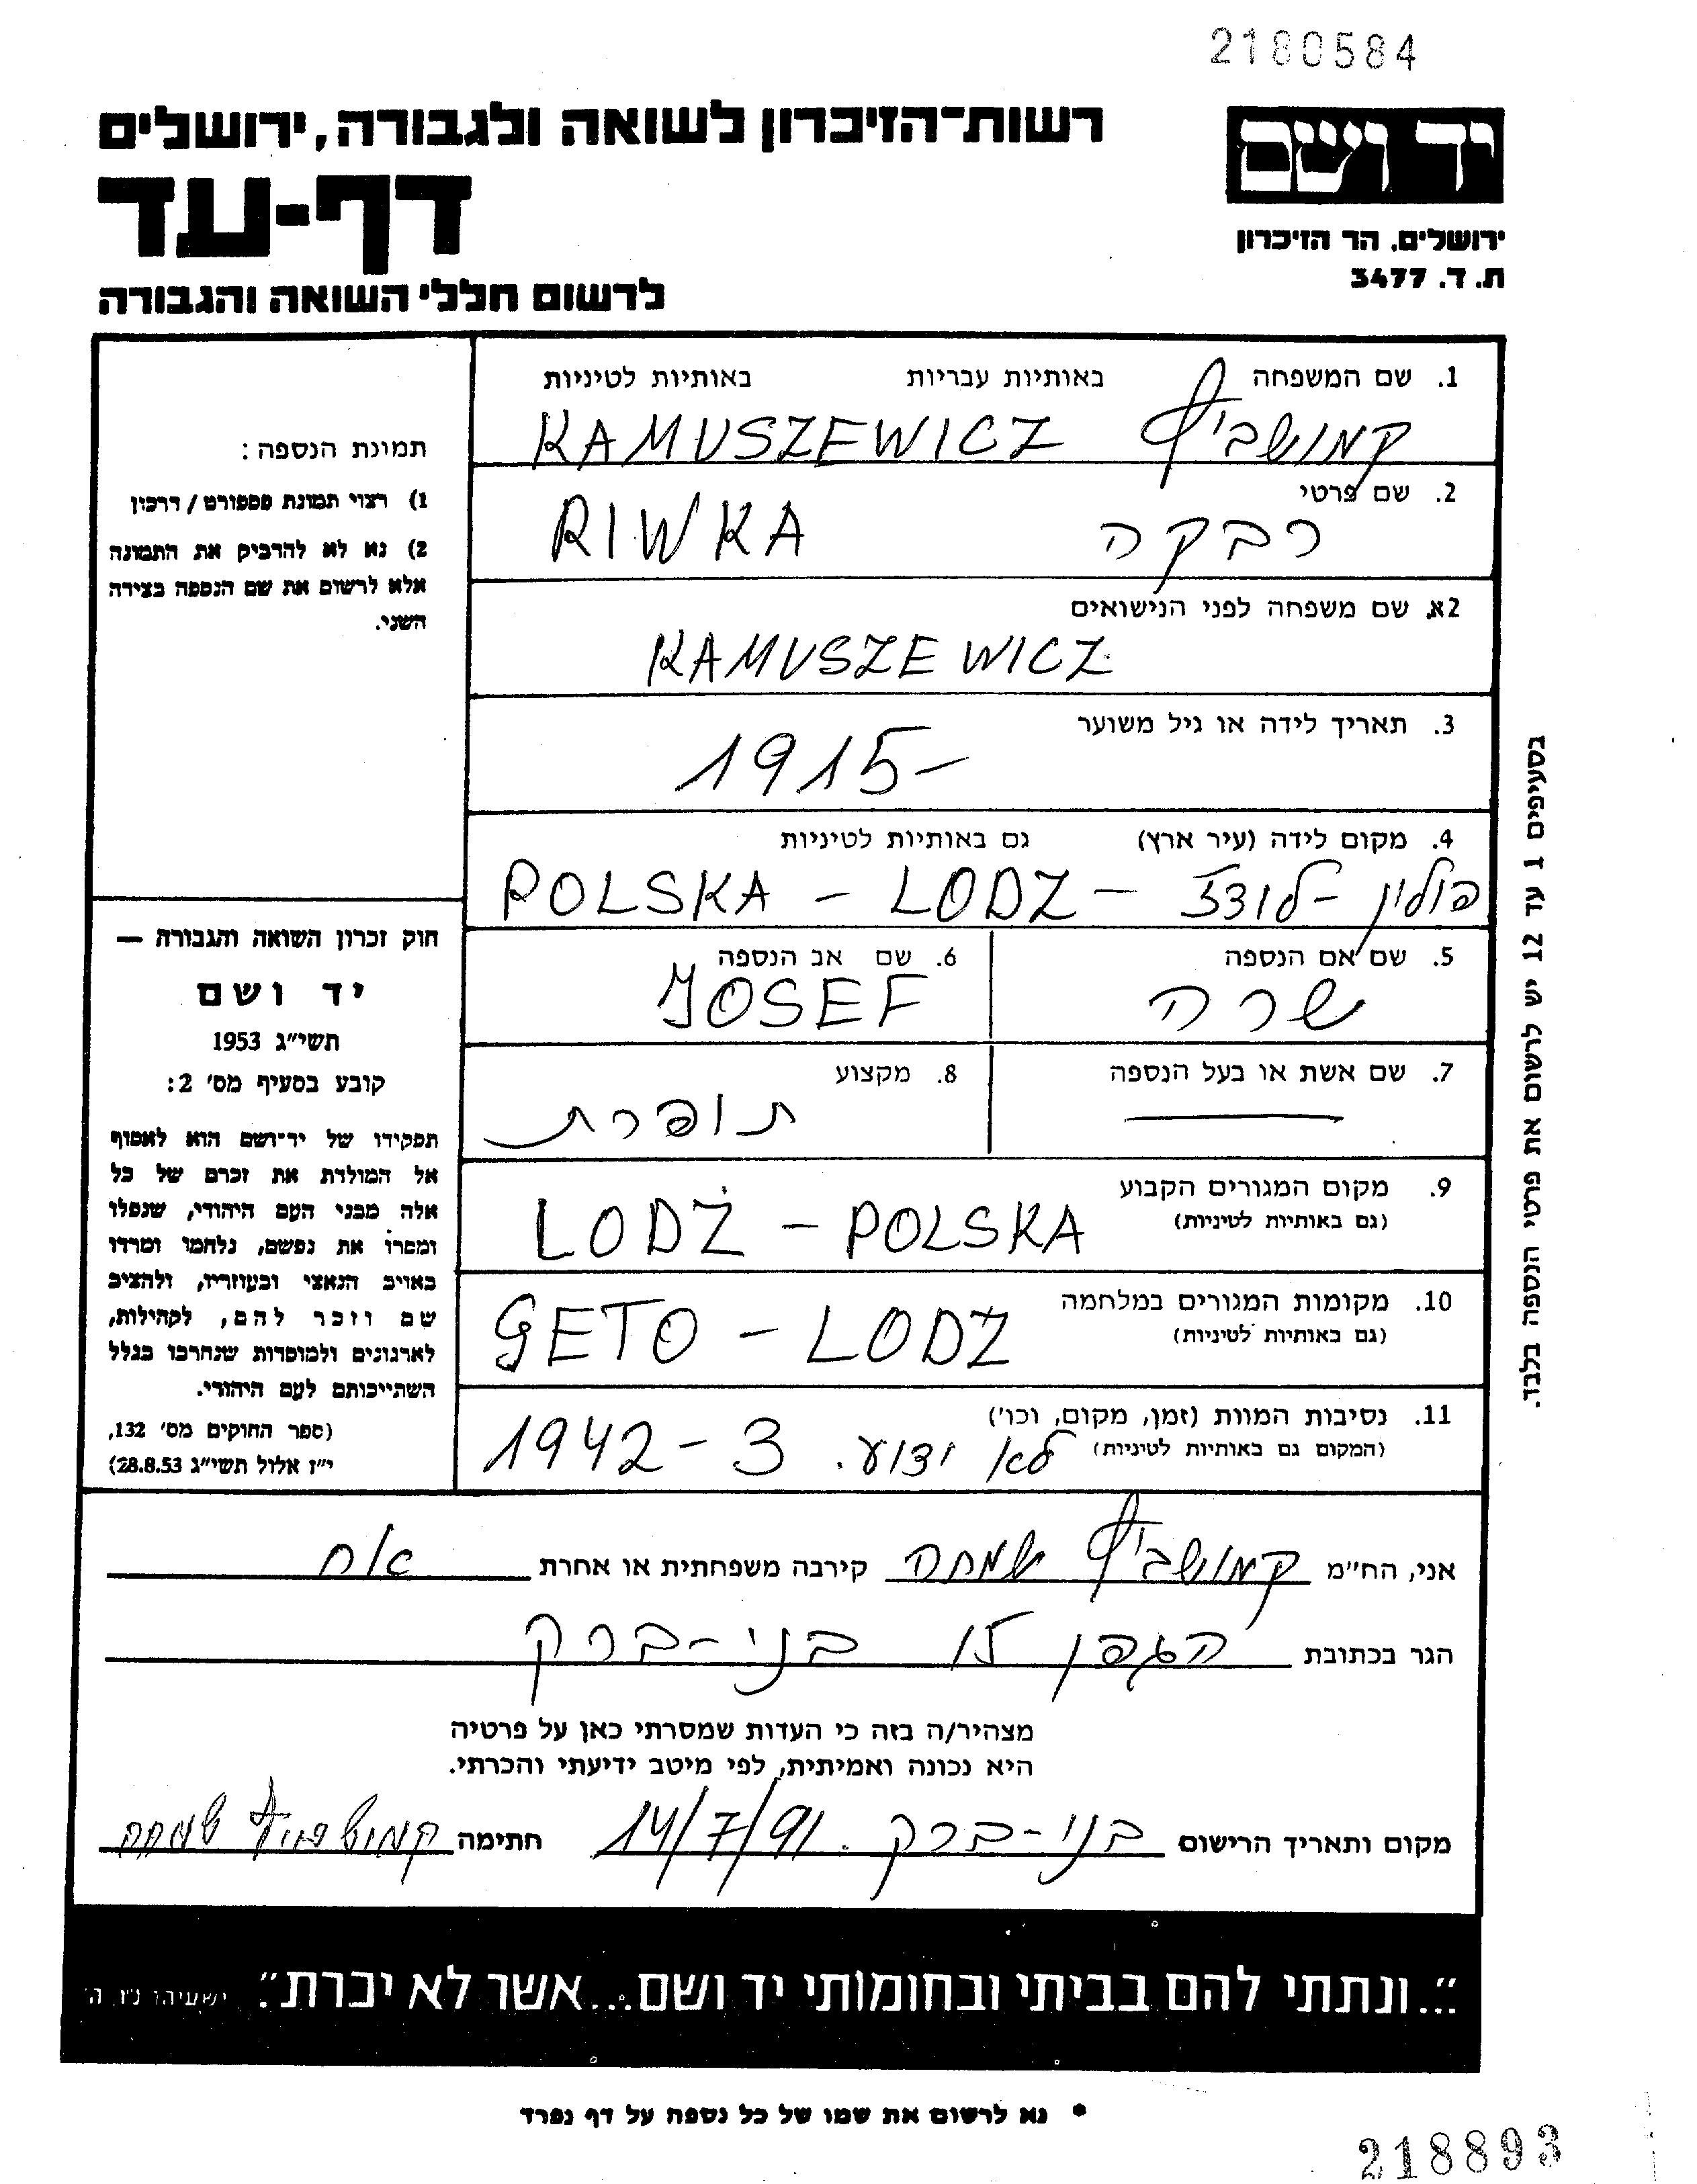 2180584
רשות־הזיכרון לשואה ולגבורה, ירושלים
יד ושם
דף-עד
ירושלים. הר הזיכרון
ת. ד. 3477
לרשום חללי השואה והגבורה
1. שם המשפחה באותיות עבריות באותיות לטיניות
קמושביץ KAMUSZEWICZ
2. שם פרטי
רבקה RIWKA
2א. שם משפחה לפני הנישואים
KAMUSZEWICZ
3. תאריך לידה או גיל משוער
1915-
4. מקום לידה (עיר ארץ) גם באותיות לטיניות
פולין - לודז - POLSKA - LODZ
5. שם אם הנספה 6. שם אב הנספה
שרה JOSEF
7. שם אשת או בעל הנספה 8. מקצוע
תופרת
9. מקום המגורים הקבוע
(גם באותיות לטיניות)
LODŻ - POLSKA
10. מקומות המגורים במלחמה
(גם באותיות לטיניות)
GETO - LODZ
11. נסיבות המוות (זמן, מקום, וכו')
(המקום גם באותיות לטיניות)
לא ידוע. 1942 - 3
תמונת הנספה:
1) רצוי תמונת פספורט / דרכון
2) נא לא להדביק את התמונה
אלא לרשום את שם הנספה בצידה
השני.
חוק זכרון השואה והגבורה —
יד ושם
תשי״ג 1953
קובע בסעיף מס' 2:
תפקידו של יד־ושם הוא לאסוף
אל המולדת את זכרם של כל
אלה מבני העם היהודי, שנפלו
ומסרו את נפשם, נלחמו ומרדו
באויב הנאצי ובעוזריו, ולהציב
שם וזכר להם, לקהילות,
לארגונים ולמוסדות שנחרבו בגלל
השתייכותם לעם היהודי.
(ספר החוקים מס' 132,
י״ז אלול תשי״ג 28.8.53)
בסעיפים 1 עד 12 יש לרשום את פרטי הנספה בלבד.
אני, הח״מ קמושביץ שמחה קירבה משפחתית או אחרת אח
הגר בכתובת הגפן 15 בני-ברק
מצהיר/ה בזה כי העדות שמסרתי כאן על פרטיה
היא נכונה ואמיתית, לפי מיטב ידיעתי והכרתי.
מקום ותאריך הרישום בני-ברק. 14/7/91 חתימה קמושביץ שמחה
״...ונתתי להם בביתי ובחומותי יד ושם...אשר לא יכרת״. ישעיהו נ״ו, ה'
* נא לרשום את שמו של כל נספה על דף נפרד
218893